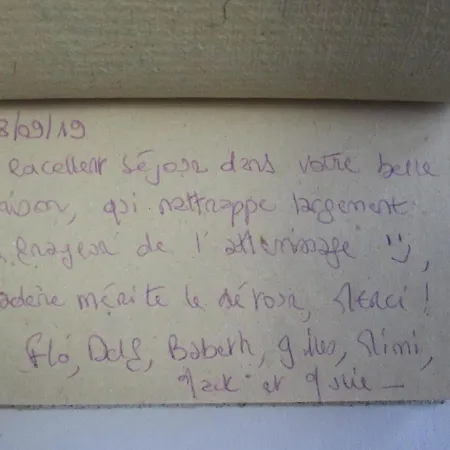 8/09/19
excellent séjour dans votre belle
aison, qui rattrappe largement
frayeur de l'atterrissage :),
adère mérite le détour, Merci !
Flo, Dd, Babeth, Gilles, Mimi,
Jack et Julie -